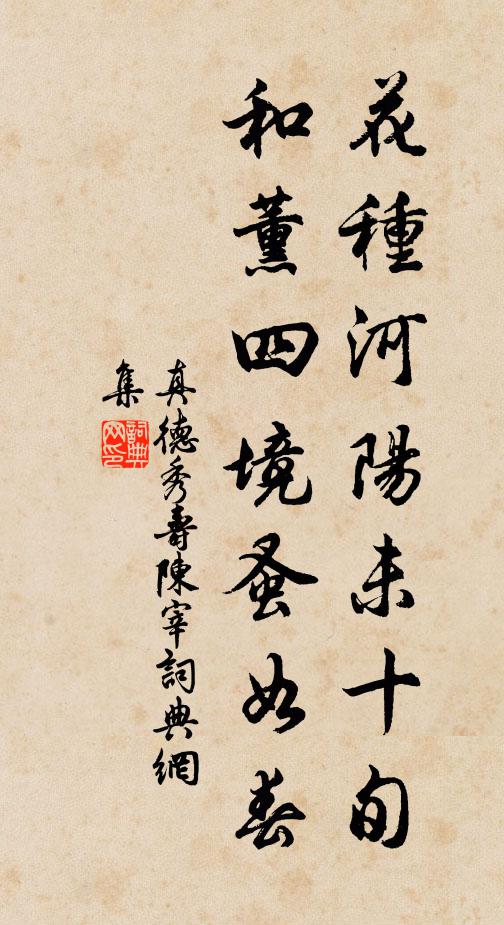 花種河陽未十旬
和薰四境蚤如春
真德秀壽陳宰詞典網
集
詞典网印